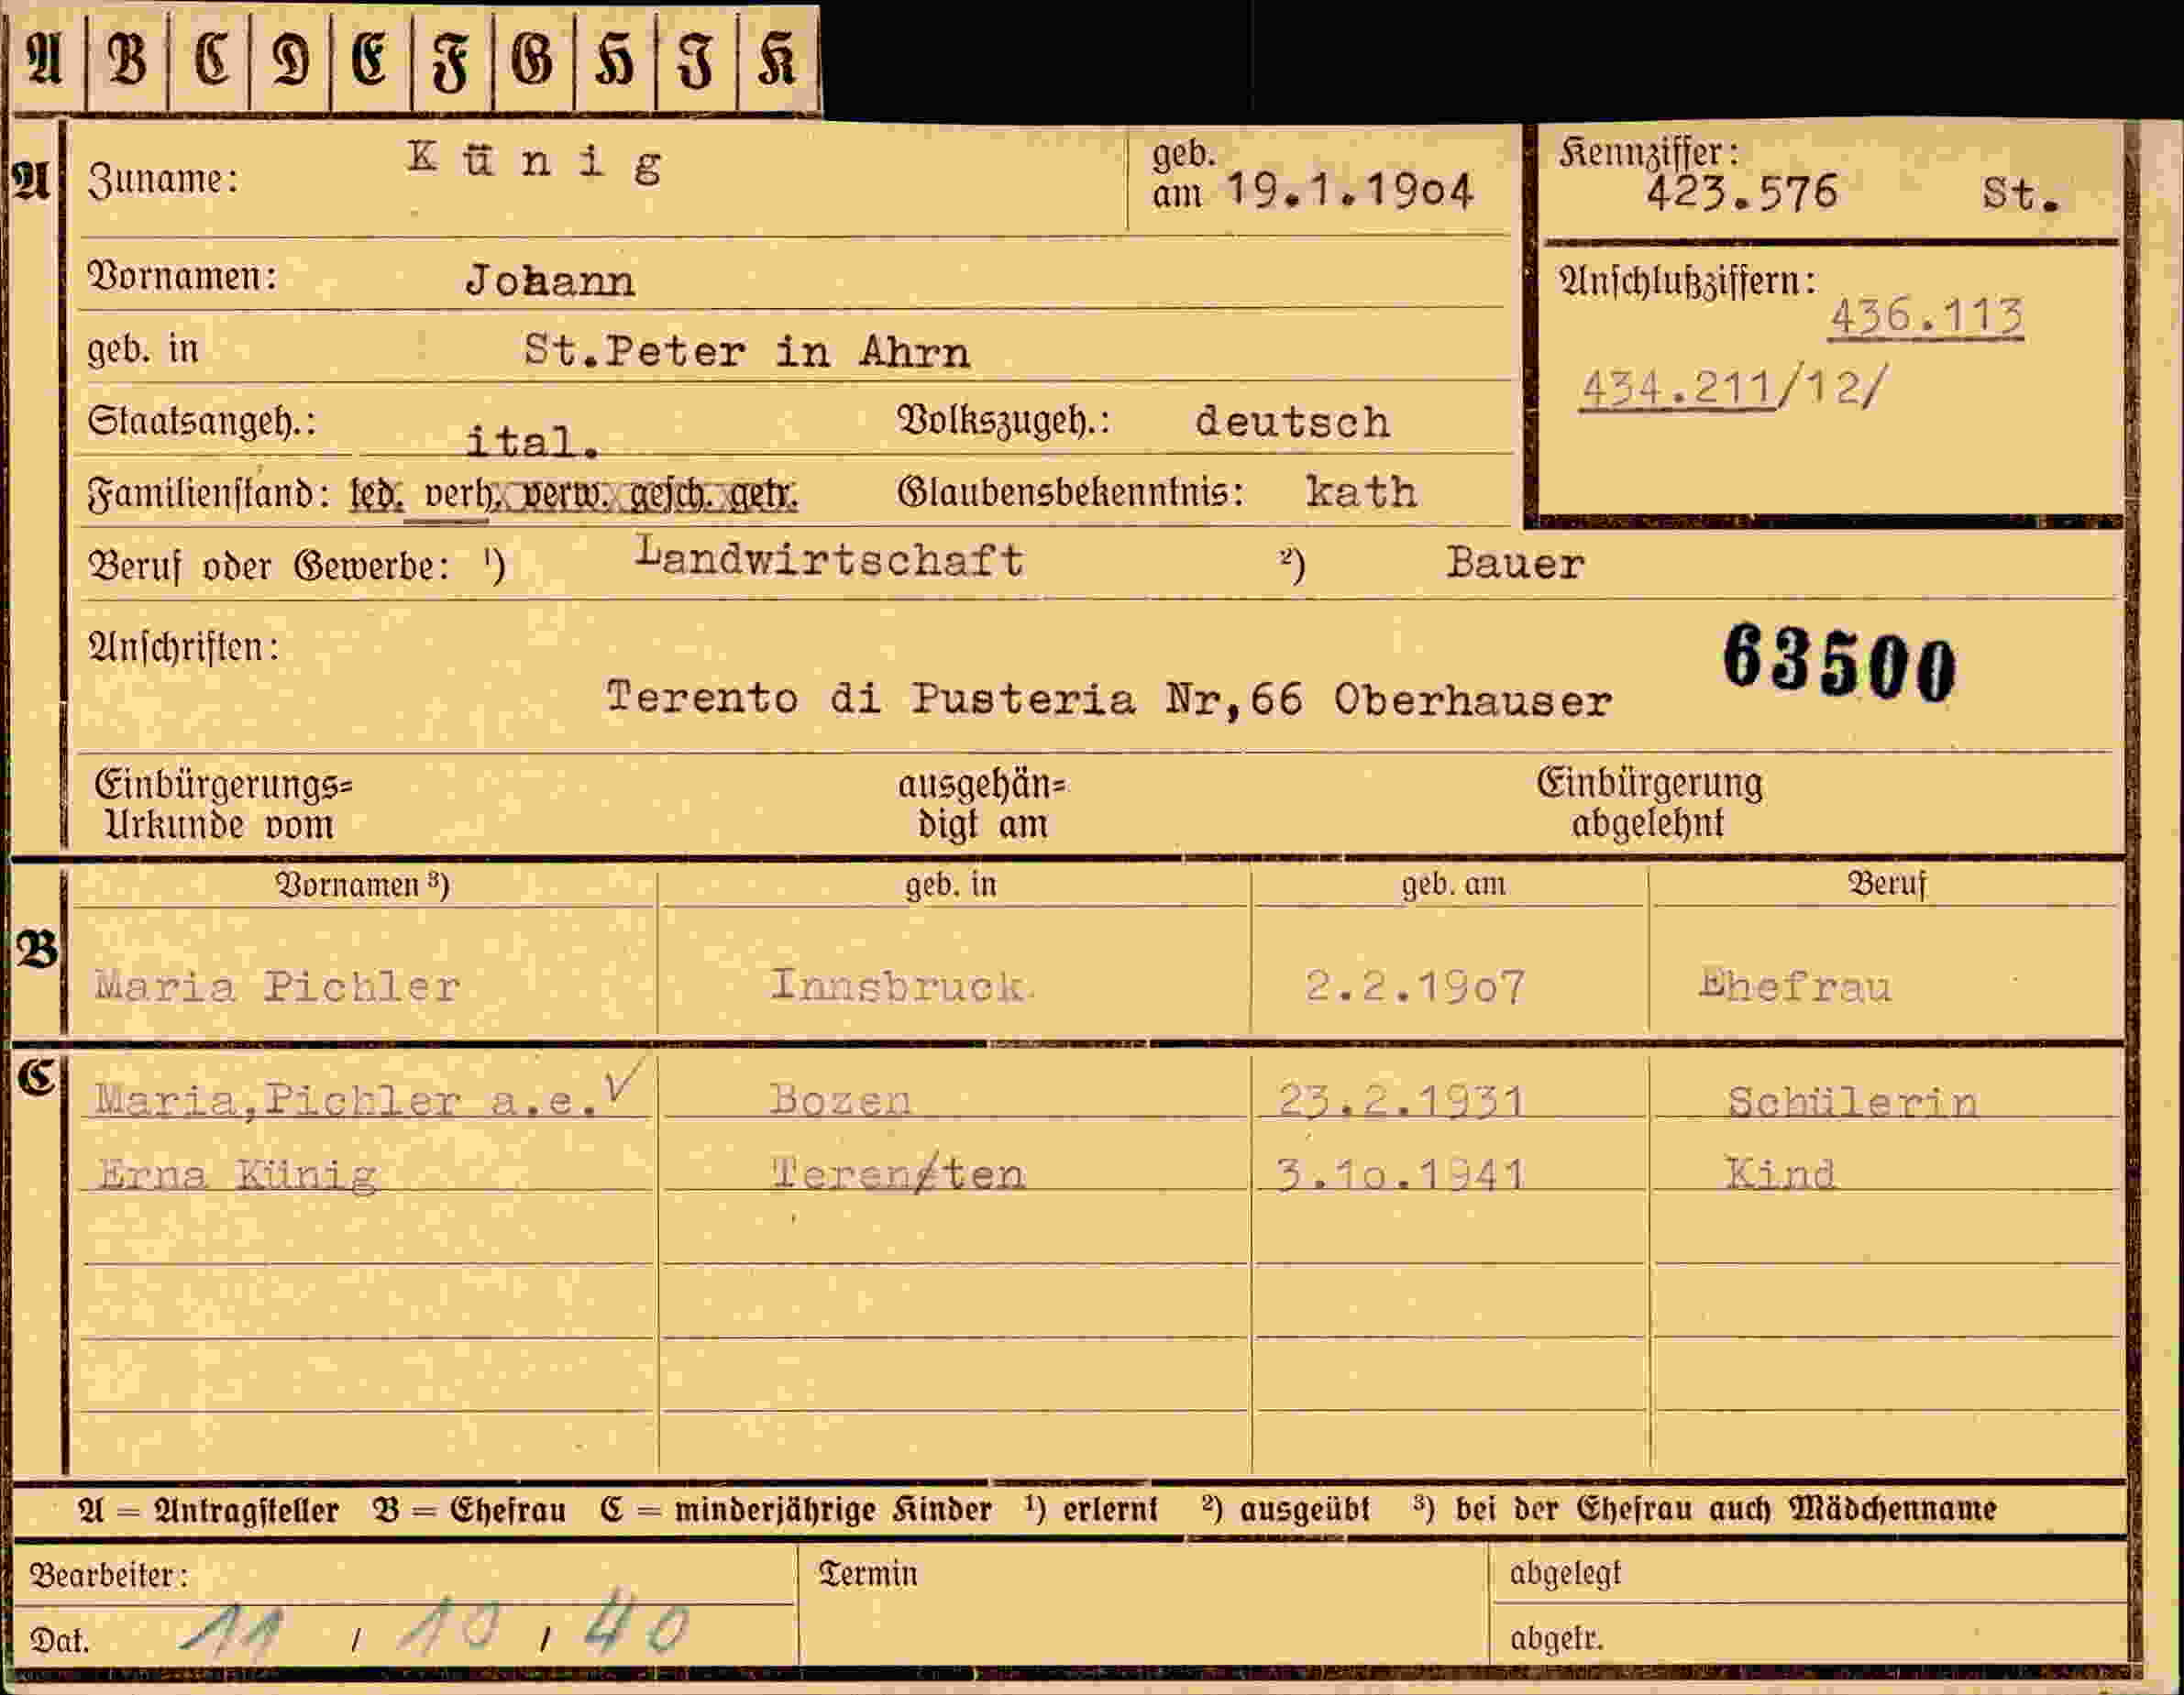 A B C D E F G H I K
A Zuname: Künig geb. am 19.1.1904 Kennziffer: 423.576 St.
Vornamen: Johann Anschlußziffern: 436.113
geb. in St.Peter in Ahrn 434.211/12/
Staatsangeh.: ital. Volkszugeh.: deutsch
Familienstand: led. verh. verw. gesch. getr. Glaubensbekenntnis: kath
Beruf oder Gewerbe: ¹) Landwirtschaft ²) Bauer
Anschriften: 63500
Terento di Pusteria Nr,66 Oberhauser
Einbürgerungs= ausgehän= Einbürgerung
Urkunde vom digt am abgelehnt
Vornamen ³) geb. in geb. am Beruf
B Maria Pichler Innsbruck. 2.2.1907 Ehefrau
C Maria,Pichler a.e. √ Bozen 23.2.1931 Schülerin
Erna Künig Teren/ten 3.10.1941 Kind
A = Antragsteller B = Ehefrau C = minderjährige Kinder ¹) erlernt ²) ausgeübt ³) bei der Ehefrau auch Mädchenname
Bearbeiter: Termin abgelegt
Dat. 11 / 10 / 40 abgetr.